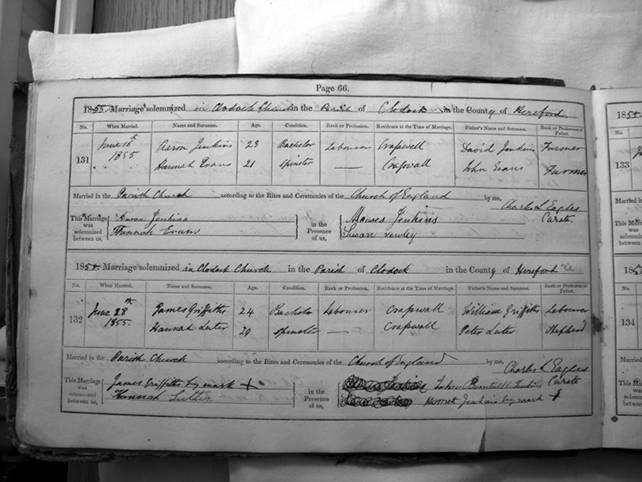 Page 66.
1855. Marriage solemnized in Clodock Church in the Parish of Clodock in the County of Hereford
No. When Married. Name and Surname. Age. Condition. Rank or Profession. Residence at the Time of Marriage. Father's Name and Surname. Rank or Profession of Father.
131 June 10th 1855 Aaron Jenkins 23 Bachelor Labourer Craswall David Jenkins Farmer
Hannah Evans 21 Spinster — Craswall John Evans Farmer
Married in the Parish Church according to the Rites and Ceremonies of the Church of England by me, Charles L Eagles Curate
This Marriage was solemnized between us, Aaron Jenkins Hannah Evans in the Presence of us, Moses Jenkins Susan
1855. Marriage solemnized in Clodock Church in the Parish of Clodock in the County of Hereford
No. When Married. Name and Surname. Age. Condition. Rank or Profession. Residence at the Time of Marriage. Father's Name and Surname. Rank or Profession of Father.
132 June 28th 1855. James Griffiths 24 Bachelor Labourer Craswall William Griffiths Labourer
Hannah 20 Spinster — Craswall Peter Shepherd
Married in the Parish Church according to the Rites and Ceremonies of the Church of England by me, Charles L Eagles Curate
This Marriage was solemnized between us, James Griffiths by mark + Hannah in the Presence of us, John
Jenkins by mark +
133
134